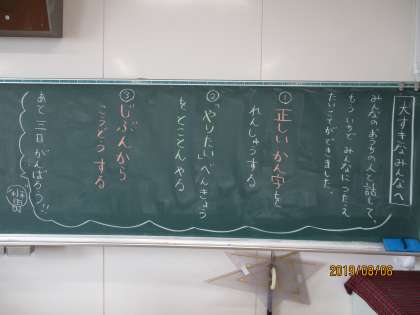 大すきなみんなへ
みんなのおうちの人と話して、
もういちどみんなにつたえ
たいことができました。
①正しいかん字を
れんしゅうする
②「やりたい」べんきょう
をとことんやる
③じぶんから
こうどうする
あと三日がんばろう!!
2019/08/06